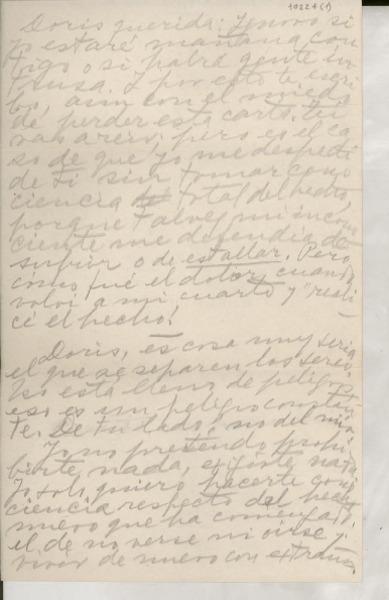 10224 (1)
Doris querida: Ignoro si
yo estaré mañana con
tigo o si habrá gente in
trusa. Y por esto te escri
bo, aún con el miedo
de perder esta carta. Tú
vas a reir; pero es el ca
so de que yo me despedí
de ti sin tomar cons
ciencia total del hecho,
porque talvez mi incons
ciente me defendía de
sufrir o de estallar. Pero,
como fué el dolor, cuando
volví a mi cuarto y "reali
cé el hecho!
Doris, es cosa muy seria
el que se separen los seres.
está lleno de peligros,
eso es un peligro constan
te. De tu lado; no del mío.
Yo no pretendo prohi
birte nada, exijirte nada.
Yo solo quiero hacerte cons
ciencia respecto del hecho
nuevo que ha comenzado,
el de no verse ni oirse y
vivir de nuevo con extraños.